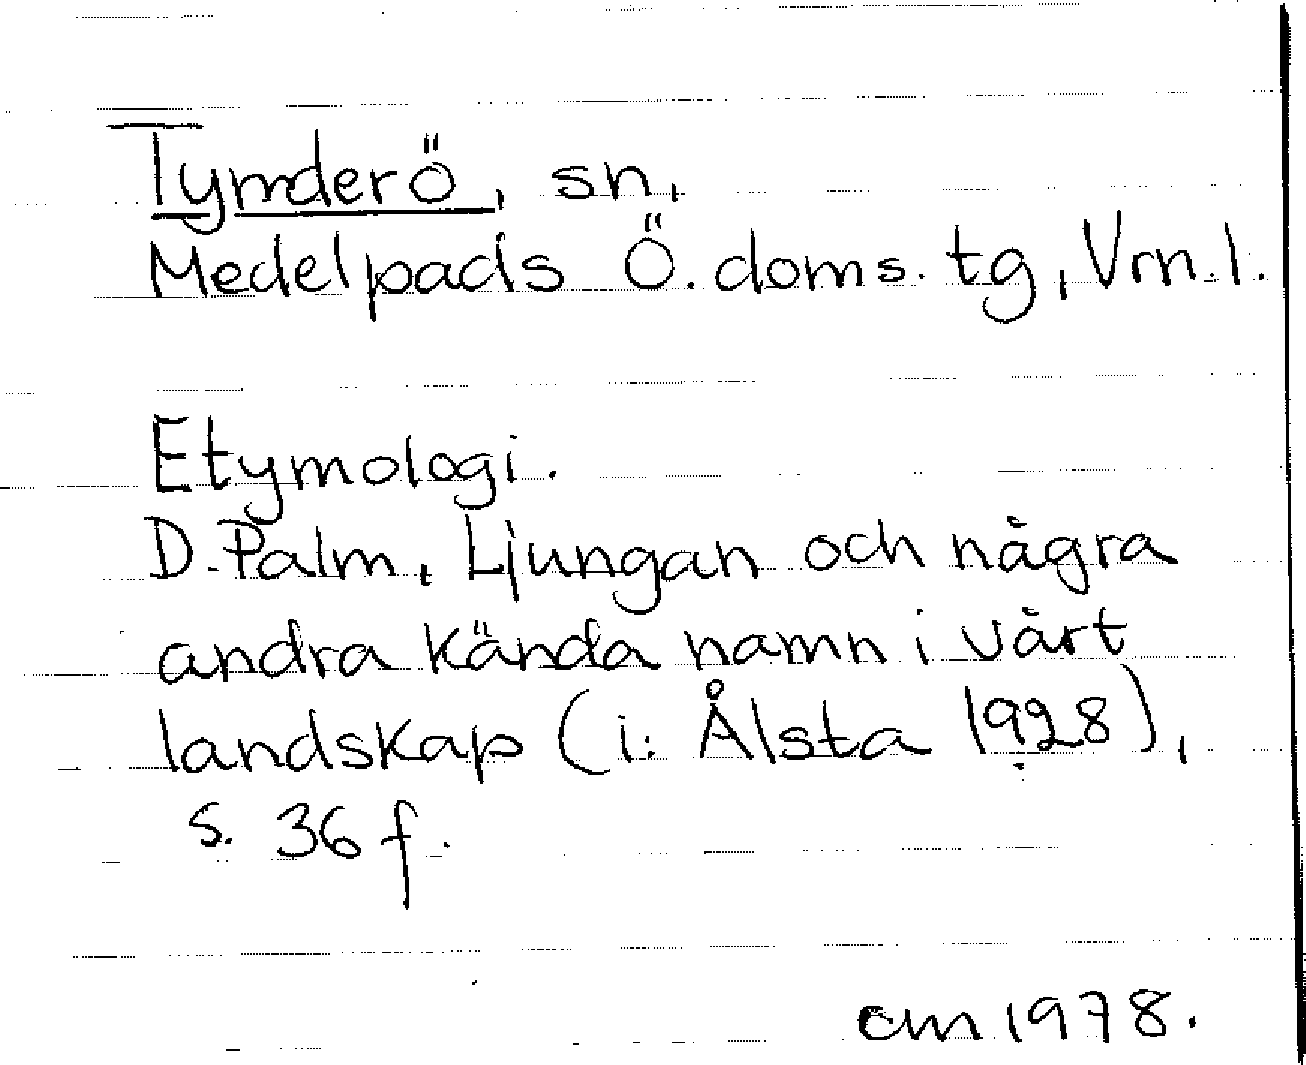 Tymderö, sn,
Medelpads Ö. doms. tg, Vrn. l.
Etymologi.
D. Palm, Ljungan och några
andra kända namn i vårt
landskap (i: Ålsta 1928),
s. 36 f.
cm 1978.